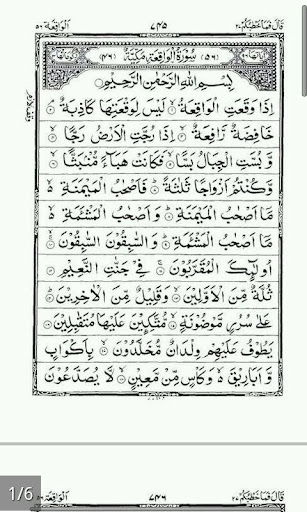 قَالَ فَمَا خَطْبُكُمْ ٢٧ ٧٤٥ اَلْوَاقِعَة ٥٦
(٥٦) سُوْرَةُ الْوَاقِعَةِ مَكِّيَّةٌ (٤٦)
بِسْمِ اللّٰهِ الرَّحْمٰنِ الرَّحِيْمِ
اِذَا وَقَعَتِ الْوَاقِعَةُ ۝ لَيْسَ لِوَقْعَتِهَا كَاذِبَةٌ ۝
خَافِضَةٌ رَّافِعَةٌ ۝ اِذَا رُجَّتِ الْاَرْضُ رَجًّا ۝
وَّ بُسَّتِ الْجِبَالُ بَسًّا ۝ فَكَانَتْ هَبَآءً مُّنْۢبَثًّا ۝
وَّ كُنْتُمْ اَزْوَاجًا ثَلٰثَةً ۝ فَاَصْحٰبُ الْمَيْمَنَةِ ۵
مَاۤ اَصْحٰبُ الْمَيْمَنَةِ ۝ وَ اَصْحٰبُ الْمَشْـَٔمَةِ ۵
مَاۤ اَصْحٰبُ الْمَشْـَٔمَةِ ۝ وَ السّٰبِقُوْنَ السّٰبِقُوْنَ ۝
اُولٰٓئِكَ الْمُقَرَّبُوْنَ ۝ فِيْ جَنّٰتِ النَّعِيْمِ ۝
ثُلَّةٌ مِّنَ الْاَوَّلِيْنَ ۝ وَ قَلِيْلٌ مِّنَ الْاٰخِرِيْنَ ۝
عَلٰى سُرُرٍ مَّوْضُوْنَةٍ ۝ مُّتَّكِـِٕيْنَ عَلَيْهَا مُتَقٰبِلِيْنَ ۝
يَطُوْفُ عَلَيْهِمْ وِلْدَانٌ مُّخَلَّدُوْنَ ۝ بِاَكْوَابٍ
وَّ اَبَارِيْقَ ۵ وَ كَاْسٍ مِّنْ مَّعِيْنٍ ۝ لَّا يُصَدَّعُوْنَ
1/6
قَالَ فَمَا خَطْبُكُمْ ٢٧ ٧٤٦ اَلْوَاقِعَة ٥٦